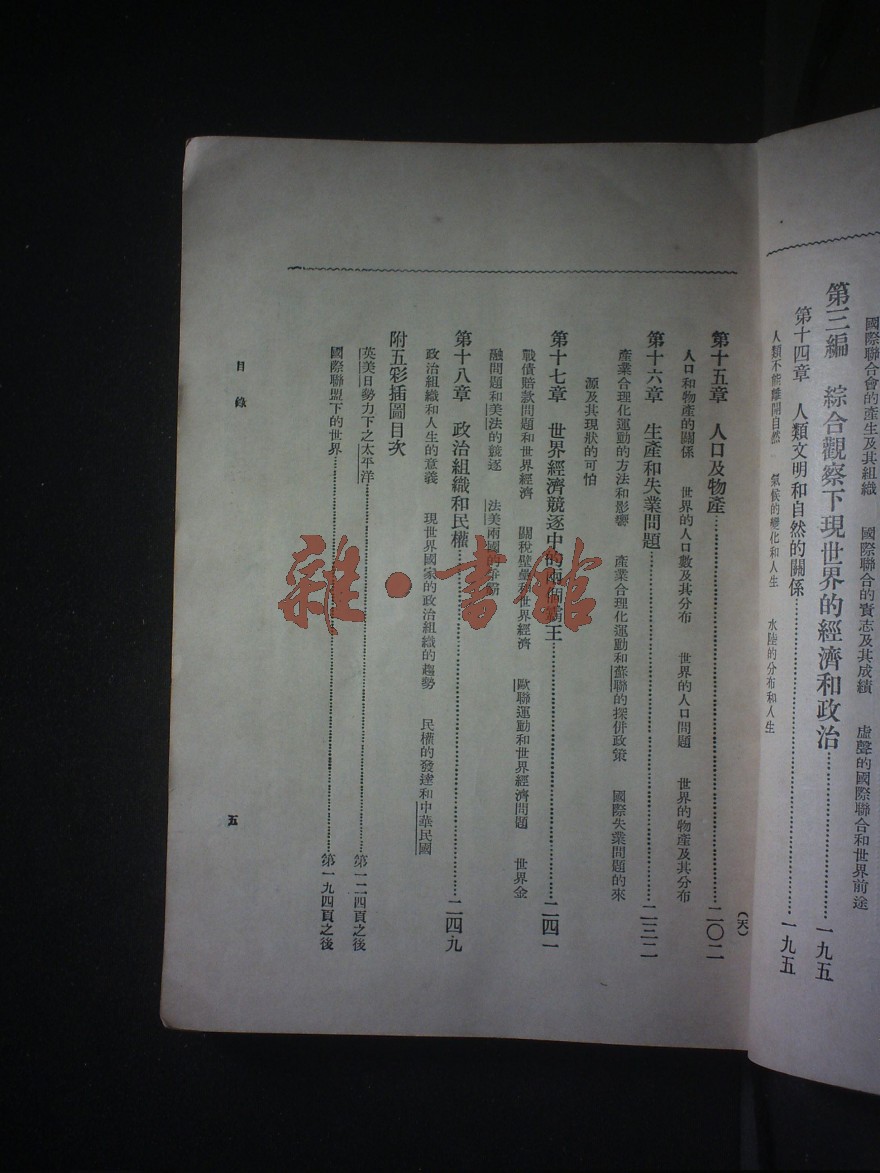 國際聯合會的產生及其組織　國際聯合的實志及其成績　虛聲的國際聯合和世界前途
第三編　綜合觀察下現世界的經濟和政治…………一九五
第十四章　人類文明和自然的關係…………一九五
人類不能離開自然　氣候的變化和人生　水陸的分布和人生
(天)
第十五章　人口及物產…………二〇二
人口和物產的關係　世界的人口數及其分布　世界的人口問題　世界的物產及其分布
第十六章　生產和失業問題…………二三二
產業合理化運動的方法和影響　產業合理化運動和蘇聯的探併政策　國際失業問題的來
源及其現狀的可怕
第十七章　世界經濟競逐中的兩個霸王…………二四一
戰債賠款問題和世界經濟　關稅壁壘和世界經濟　歐聯運動和世界經濟問題　世界金
融問題和美法的競逐　法美兩國的爭霸
第十八章　政治組織和民權…………二四九
政治組織和人生的意義　現世界國家的政治組織的趨勢　民權的發達和中華民國
附五彩插圖目次
英美日勢力下之太平洋…………第一二四頁之後
國際聯盟下的世界…………第一九四頁之後
目錄
五
雜·書館